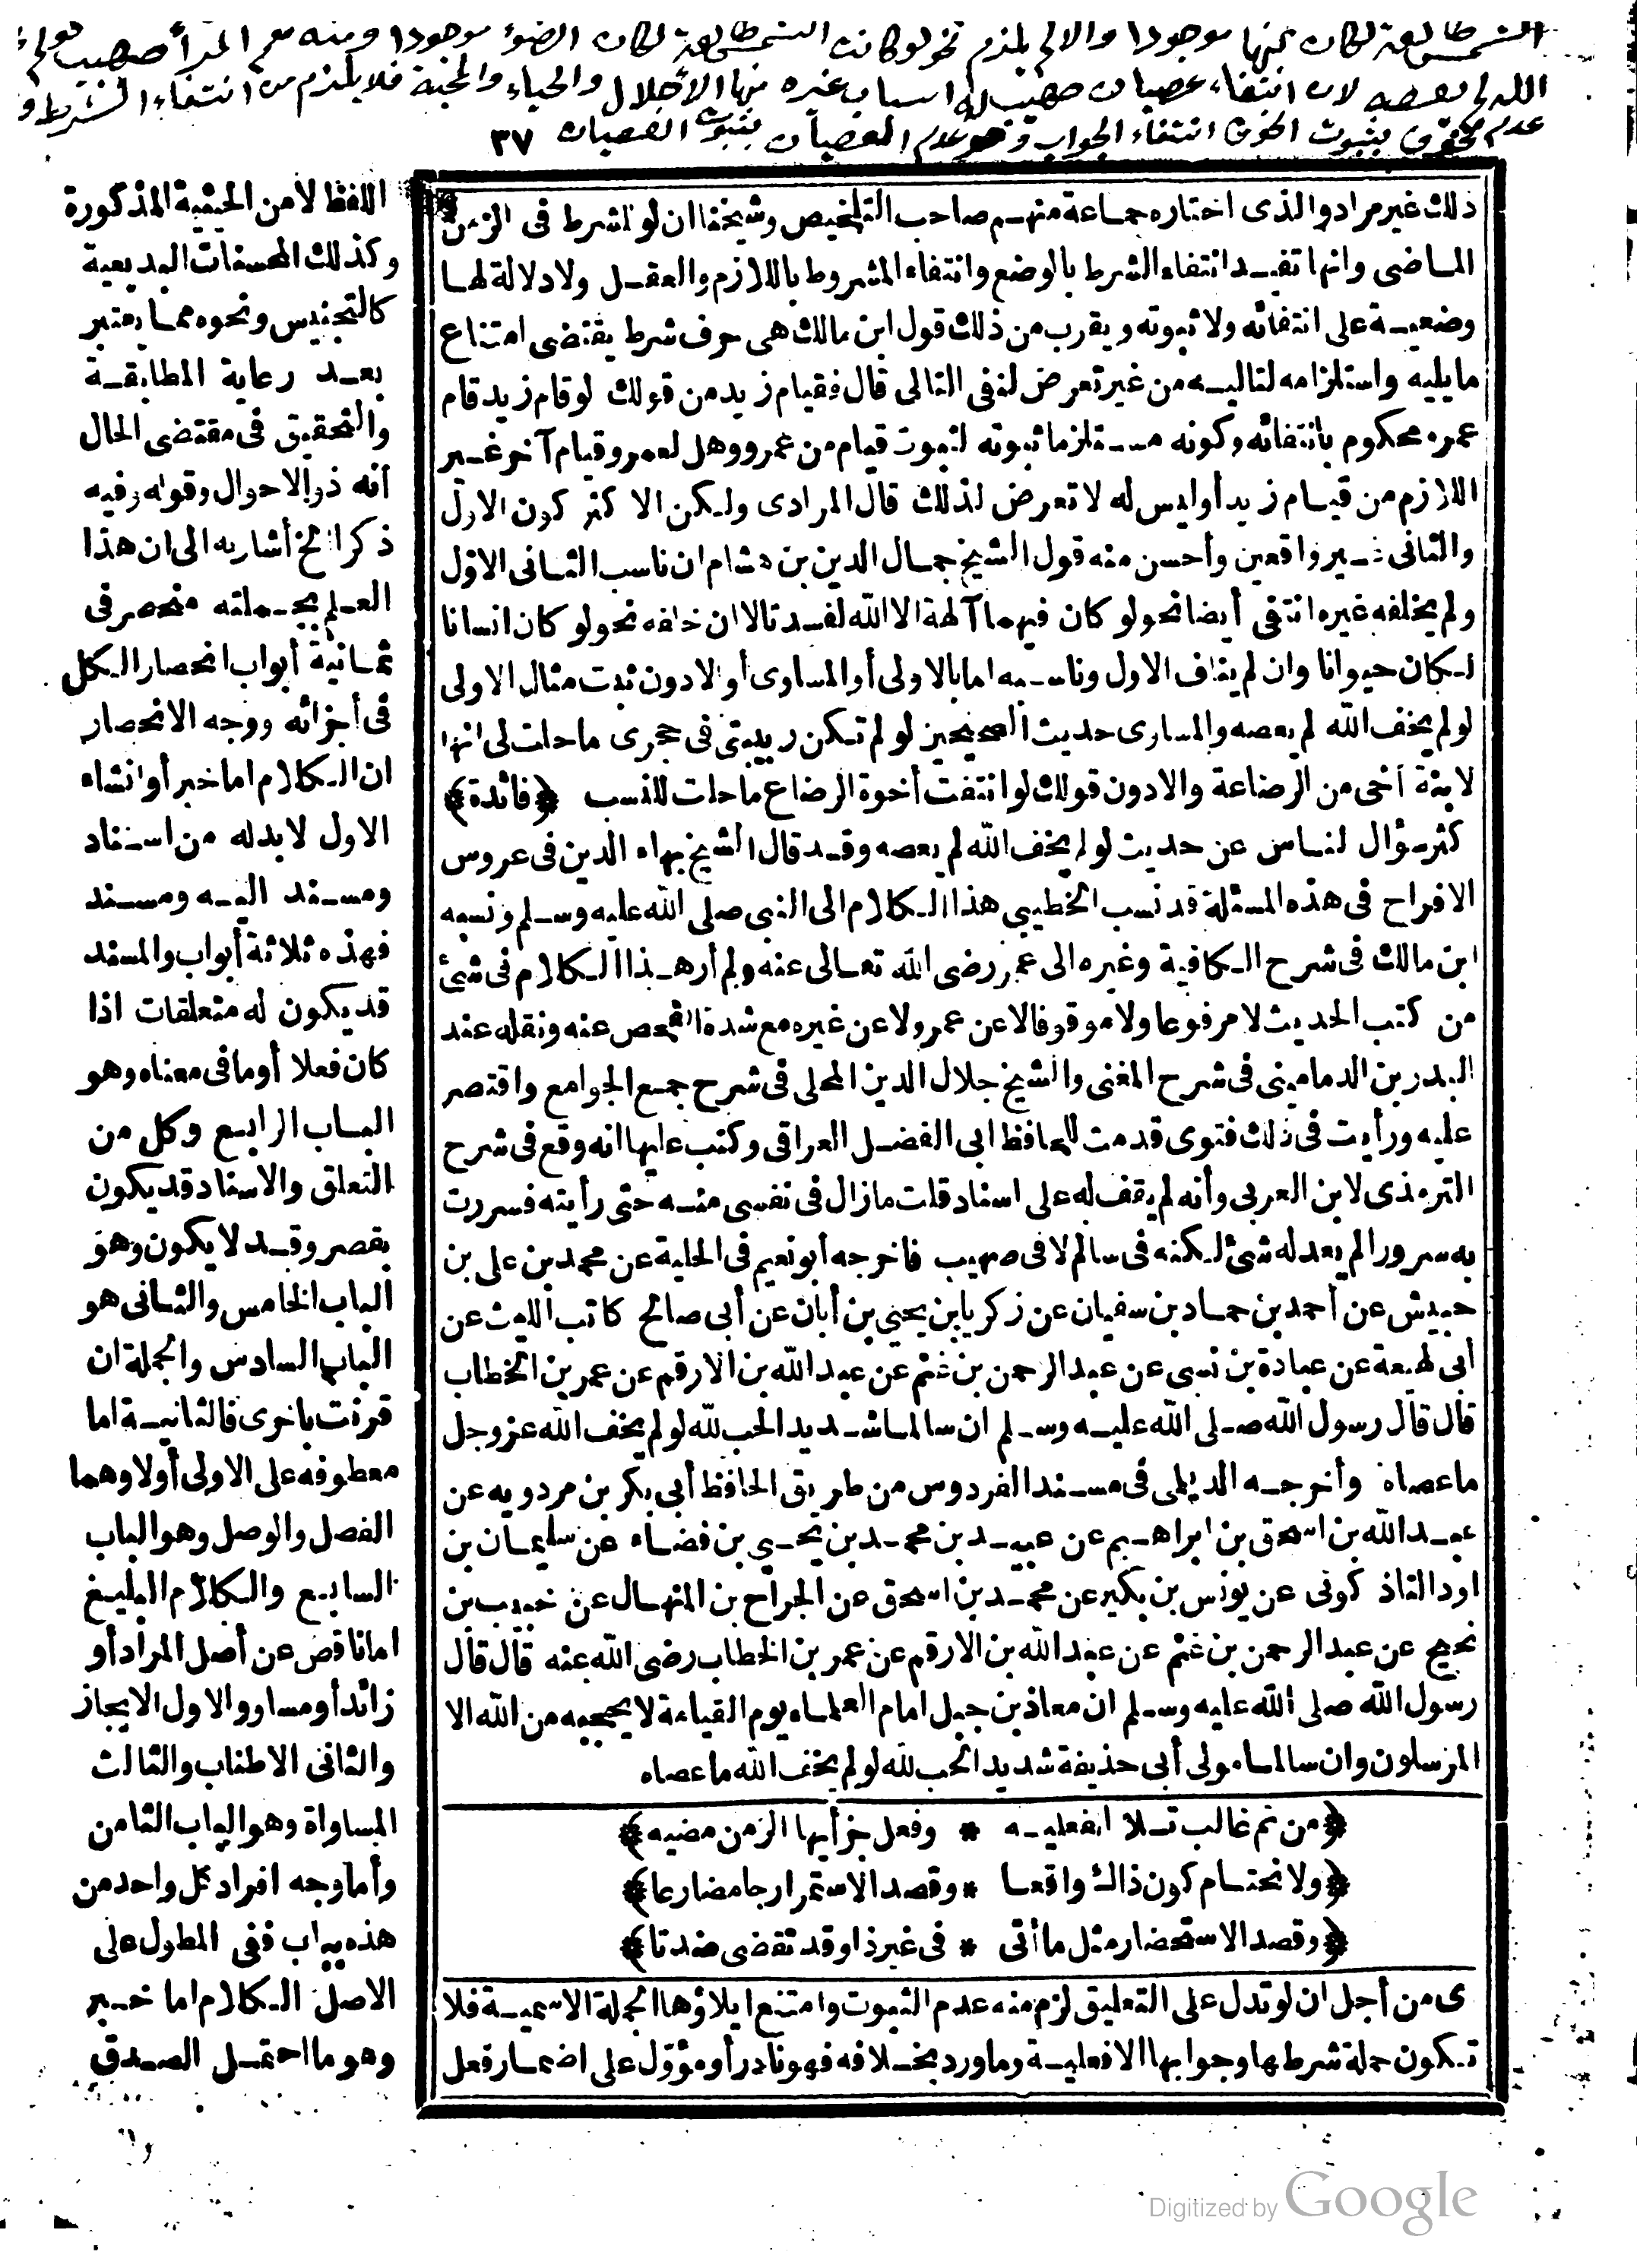 الشمس طالعة لكان منها موجودا والا لم يلزم نحو لو كانت الشمس طالعة لكان الضوء موجودا ومنه نعم المرأ صهيب لو لم يخف
الله لم يعصه لان انتفاء عصيان صهيب له اسباب غيره منها الاجلال والحياء والمحبة فلا يلزم من انتفاء الشرط و
عدم بثبوت الخوف انتفاء الجواب وهو عدم العصيان بثبوت العصيان ٣٧
ذلك غير مراد والذى اختاره جماعة منهم صاحب التلخيص وشيخنا ان لو لشرط فى الزمن
الماضى وانها تفيد انتفاء الشرط بالوضع وانتفاء المشروط باللازم والعقل ولا دلالة لها
وضعية على انتفائه ولا ثبوته ويقرب من ذلك قول ابن مالك هى حرف شرط يقتضى امتناع
ما يليه واستلزامه لتاليه من غير تعرض لنفى التالى قال فقيام زيد من قولك لو قام زيد قام
عمرو محكوم بانتفائه وكونه مستلزما ثبوته لثبوت قيام من عمرو وهل لعمرو قيام آخر غير
اللازم من قيام زيد أو ليس له لا تعرض لذلك قال المرادى ولكن الاكثر كون الاول
والثانى غير واقعين وأحسن منه قول الشيخ جمال الدين بن هشام ان ناسب الثانى الاول
ولم يخلفه غيره انتفى أيضا نحو لو كان فيهما آلهة الا الله لفسدتا لا ان خلفه نحو لو كان انسانا
لكان حيوانا وان لم يناف الاول وناسبه اما بالاولى أو المساوى أو الادون ثبت مثال الاولى
لو لم يخف الله لم يعصه والمساوى حديث الصحيحين لو لم تكن ربيبتى فى حجرى ما حلت لى انها
لابنة أخى من الرضاعة والادون قولك لو انتفت أخوة الرضاع ما حلت للنسب ﴿فائدة﴾
كثر سؤال الناس عن حديث لو لم يخف الله لم يعصه وقد قال الشيخ بهاء الدين فى عروس
الافراح فى هذه المسئلة قد نسب الخطيبى هذا الكلام الى النبى صلى الله عليه وسلم ونسبه
ابن مالك فى شرح الكافية وغيره الى عمر رضى الله تعالى عنه ولم أر هذا الكلام فى شئ
من كتب الحديث لا مرفوعا ولا موقوفا لا عن عمر ولا عن غيره مع شدة الفحص عنه ونقله عند
البدر بن الدمامينى فى شرح المغنى والشيخ جلال الدين المحلى فى شرح جمع الجوامع واقتصر
عليه ورأيت فى ذلك فتوى قدمت للحافظ ابى الفضل العراقى وكتب عليها انه وقع فى شرح
الترمذى لابن العربى وأنه لم يقف له على اسناد قلت ما زال فى نفسى منه حتى رأيته فسررت
به سرورا لم يعدله شئ لكنه فى سالم لا فى صهيب فاخرجه أبو نعيم فى الحلية عن محمد بن على بن
حبيش عن أحمد بن حماد بن سفيان عن زكريا بن يحيى بن أبان عن أبى صالح كاتب الليث عن
أبى لهيعة عن عبادة بن نسى عن عبد الرحمن بن غنم عن عبد الله بن الارقم عن عمر بن الخطاب
قال قال رسول الله صلى الله عليه وسلم ان سالما شديد الحب لله لو لم يخف الله عز وجل
ما عصاه وأخرجه الديلمى فى مسند الفردوس من طريق الحافظ أبى بكر بن مردويه عن
عبد الله بن اسحق بن ابراهيم عن عبيد بن محمد بن يحيى بن فضاء عن سليمان بن
اود الشاذ كونى عن يونس بن بكير عن محمد بن اسحق عن الجراح بن المنهال عن حبيب بن
نجيح عن عبد الرحمن بن غنم عن عبد الله بن الارقم عن عمر بن الخطاب رضى الله عنه قال قال
رسول الله صلى الله عليه وسلم ان معاذ بن جبل امام العلماء يوم القيامة لا يحجبه من الله الا
المرسلون وان سالما مولى أبى حذيفة شديد الحب لله لو لم يخف الله ما عصاه
﴿من ثم غالب تلا الفعليه * وفعل جزأيها الزمن مضيه﴾
﴿ولا نحتام كون ذاك واقعا * وقصد الاستمرار جا مضارعا﴾
﴿وقصد الاستحضار مثل ما أتى * فى غير ذا وقد تقضى ضدتا﴾
ى من أجل ان لو تدل على التعليق لزم منه عدم الثبوت وامتنع ايلاؤها الجملة الاسمية فلا
تكون جملة شرطها وجوابها الا فعلية وما ورد بخلافه فهو نادر أو مؤول على اضمار فعل
اللفظ لا من الحيثية المذكورة
وكذلك المحسنات البديعية
كالتجنيس ونحوه مما يعتبر
بعد رعاية المطابقة
والتحقيق فى مقتضى الحال
أنه ذو الاحوال وقوله وفيه
ذكر الخ أشار به الى ان هذا
العلم بجملته منحصر فى
ثمانية أبواب انحصار الكل
فى أجزائه ووجه الانحصار
ان الكلام اما خبر أو انشاء
الاول لا بد له من اسناد
ومسند اليه ومسند
فهذه ثلاثة أبواب والمسند
قد يكون له متعلقات اذا
كان فعلا أو ما فى معناه وهو
الباب الرابع وكل من
التعلق والاسناد قد يكون
بقصر وقد لا يكون وهو
الباب الخامس والثانى هو
الباب السادس والجملة ان
قرنت باخرى فالثانية اما
معطوفة على الاولى أولا وهما
الفصل والوصل وهو الباب
السابع والكلام البليغ
اما ناقص عن أصل المراد أو
زائد أو مساو والاول الايجاز
والثانى الاطناب والثالث
المساواة وهو الباب الثامن
وأما وجه افراد كل واحد من
هذه بباب ففى المطول على
الاصل الكلام اما خبر
وهو ما احتمل الصدق
Digitized by Google